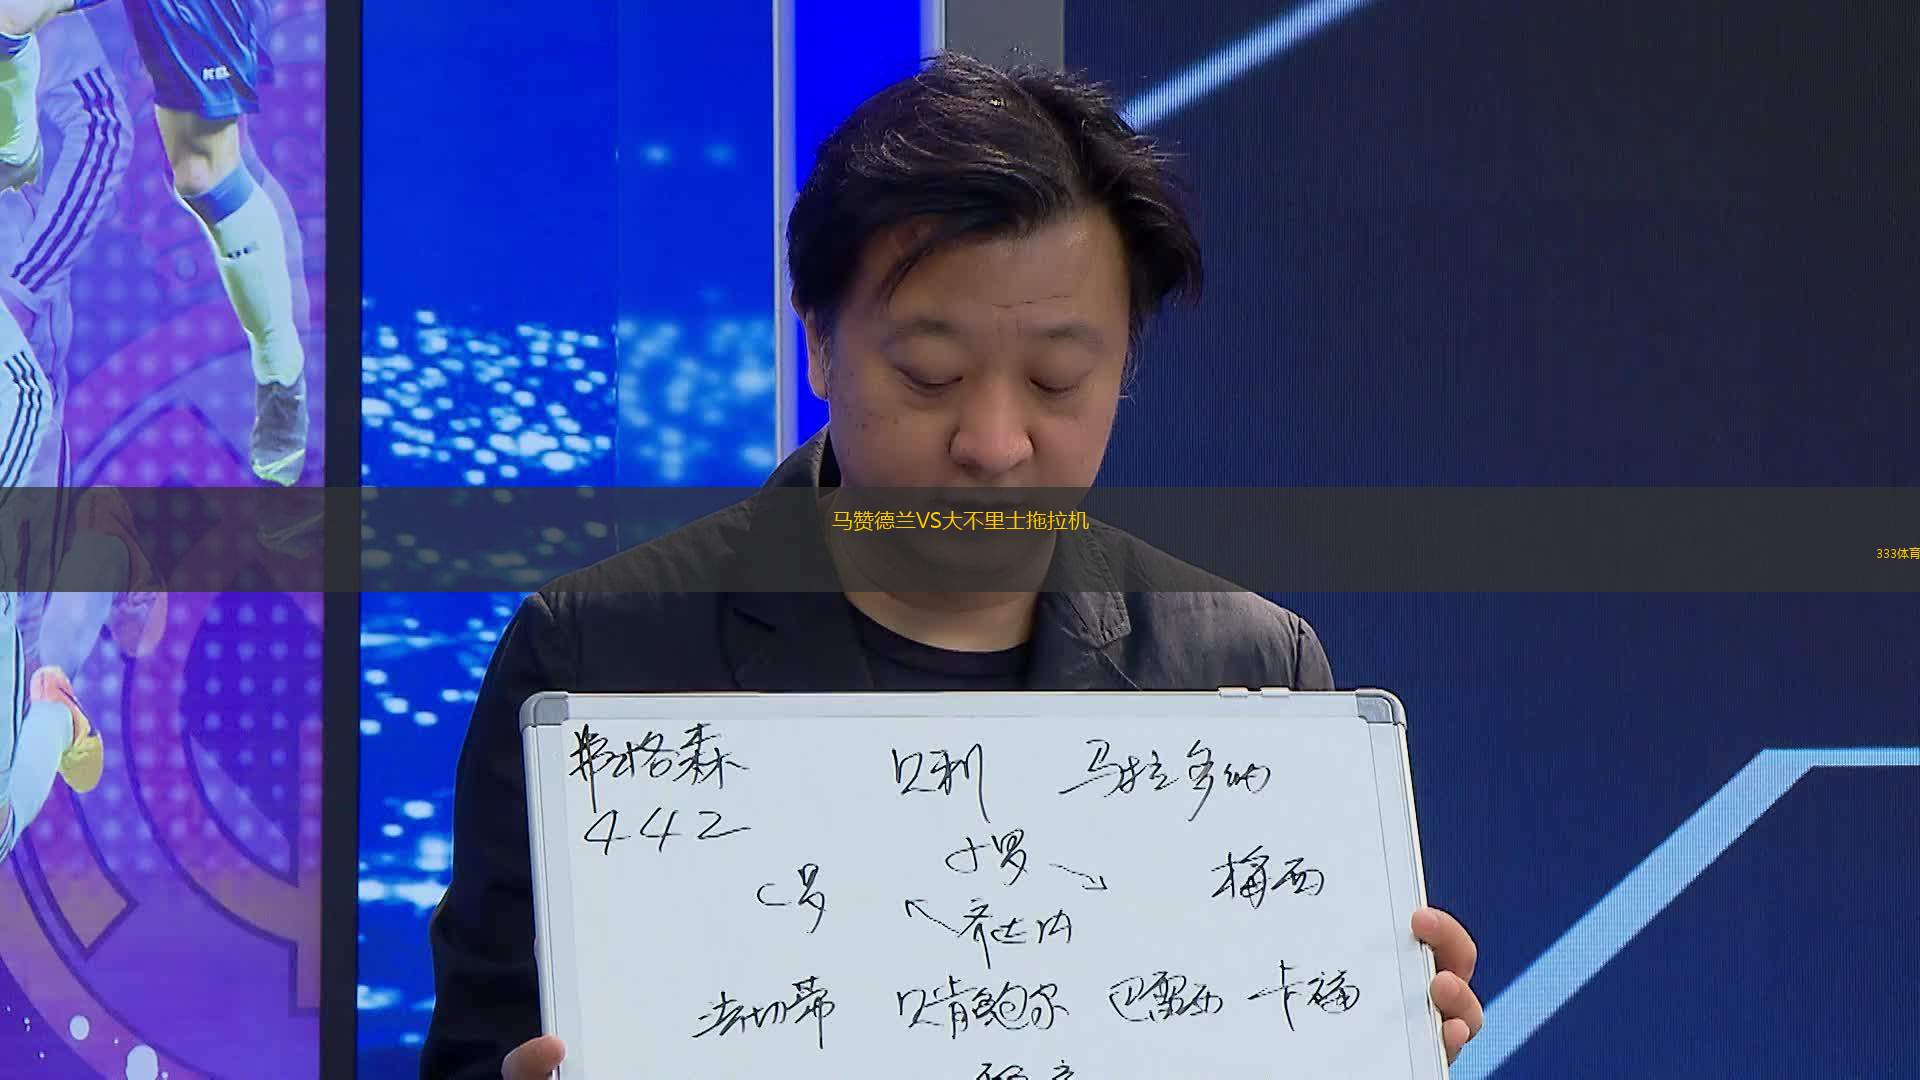 马赞德兰VS大不里士拖拉机
333体育
弗格森 贝利 马拉多纳
442
小罗
C罗 梅西
齐达内
法切蒂 贝肯鲍尔 巴雷西 卡福